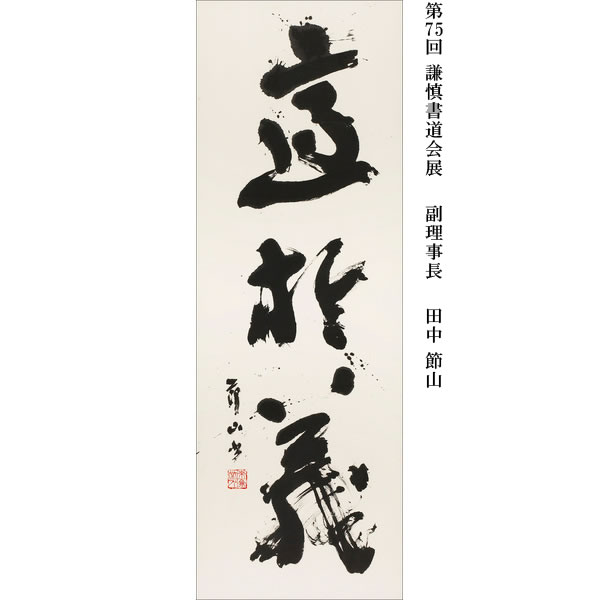 第75回 謙慎書道会展 副理事長 田中 節山
於義
節山書